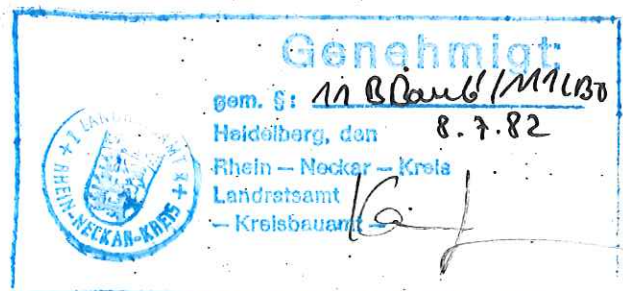 Genehmigt:
gem. §: 11 BBauG/111LBO
Heidelberg, den 8.7.82
Rhein – Neckar – Kreis
Landratsamt
– Kreisbauamt –
LANDRATSAMT
RHEIN-NECKAR-KREIS